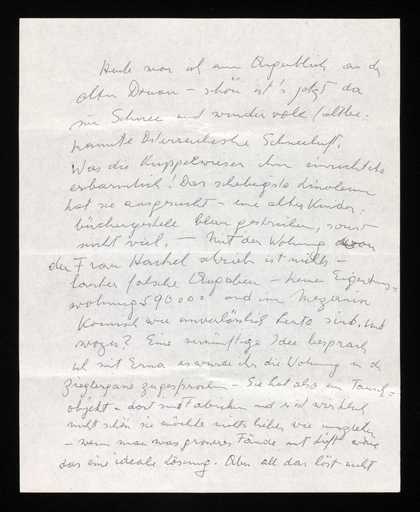 Heute war ich am Augenblick an der
alten Donau – schön ist's jetzt da
im Schnee und wundervolle altbe-
kannte österreichische Schneeluft.
Was die Kuppelwieser ihm einrichtete
erbärmlich! Das schäbigste Linoleum
hat sie ausgesucht – eine alte Kinder-
büchergestelle blau gestrichen, sonst
nicht viel. – Mit der Wohnung
der Frau Haskel abreich ist nichts –
lauter falsche Angaben – keine Eigentums-
wohnung 590000 und im Mezzanin
Komisch wie unverlässlich Leute sind. Und
wozu? Eine vernünftige Idee besprach
ich mit Erna es wurde ihr die Wohnung in der
Zieglergasse zugesprochen – Sie hat also ein Tausch-
objekt – dort und ist wirklich
nicht schön sie möchte nichts lieber wie ausziehen
– wenn man was grösseres fände mit Lift wäre
das eine ideale Lösung. Aber all das löst nicht